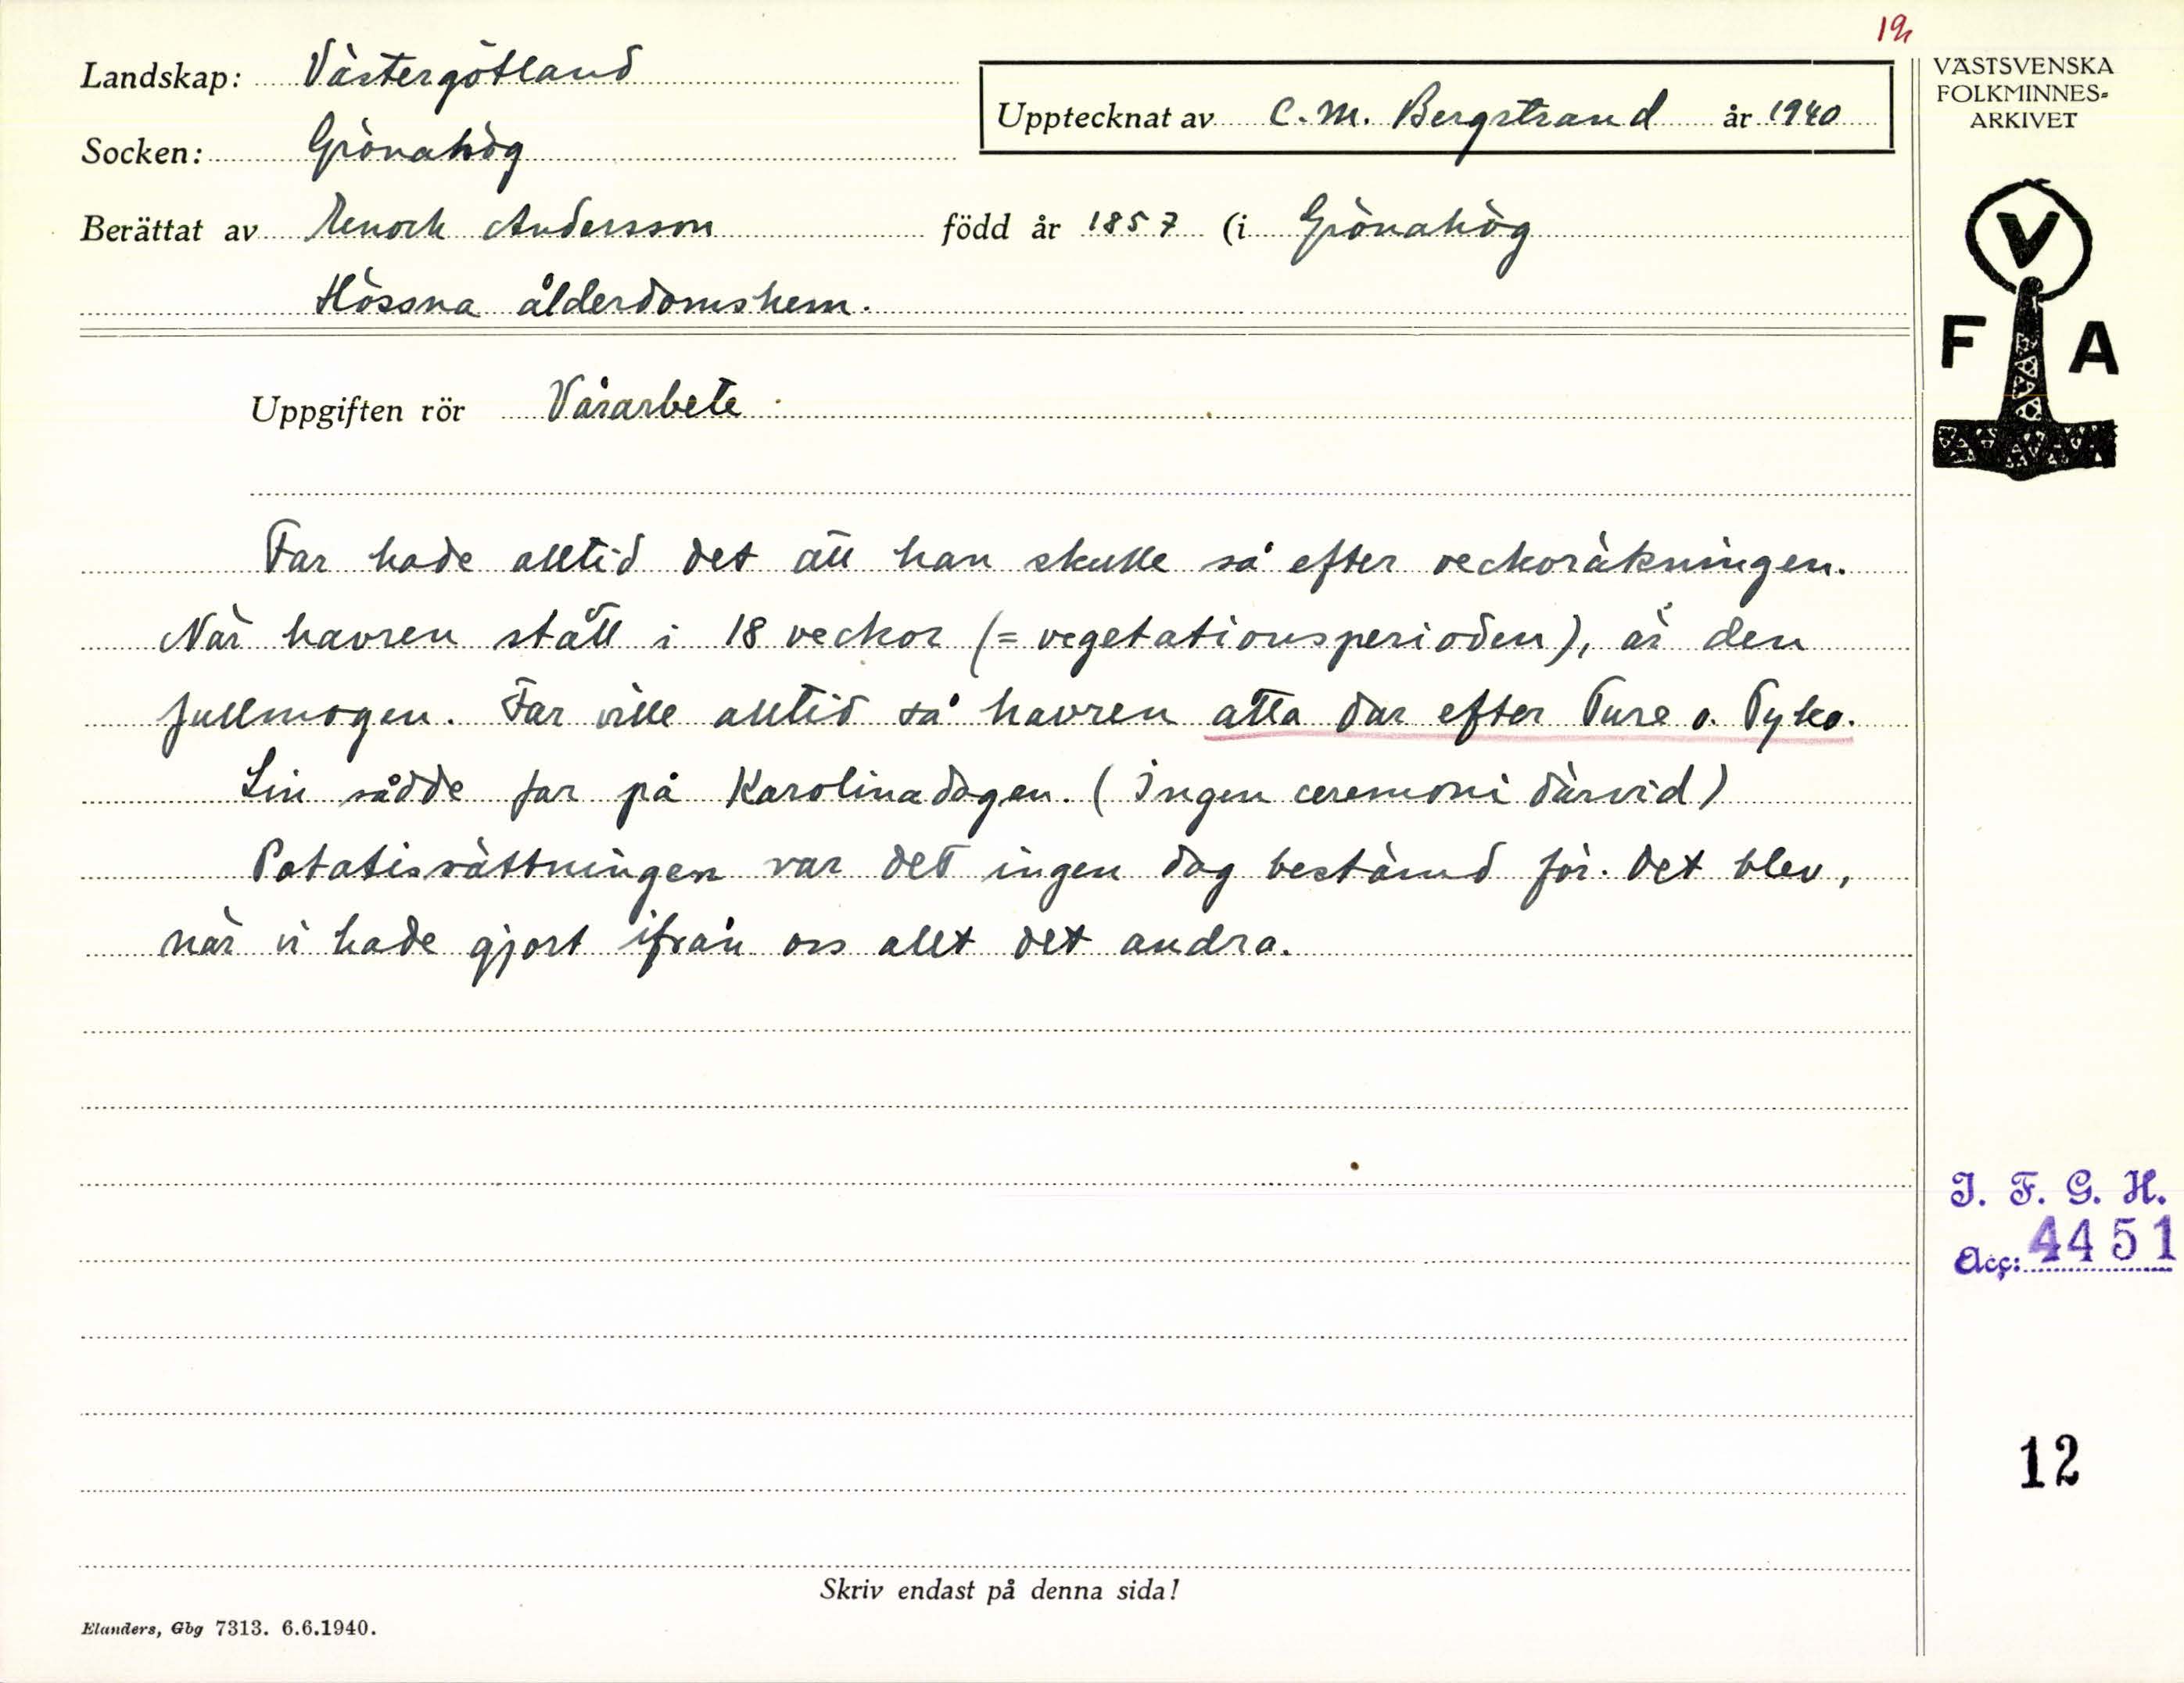 19
Landskap: Västergötland
Upptecknat av C. M. Bergstrand år 1940
Socken: Grönahög
Berättat av Enoch Andersson född år 1857 (i Grönahög
Hössna ålderdomshem.
VÄSTSVENSKA
FOLKMINNES-
ARKIVET
V
F A
Uppgiften rör Vårarbete
Far hade alltid det att han skulle så efter veckoräkningen.
När havren stått i 18 veckor (= vegetationsperioden), är den
fullmogen. Far ville alltid så havren åtta dar efter Ture o. Tyko.
Lin sådde far på Karolinadagen. (Ingen ceremoni därvid)
Potatissättningen var det ingen dag bestämd för. Det blev,
när vi hade gjort ifrån oss allt det andra.
I. F. G. H.
Acc: 4451
12
Skriv endast på denna sida!
Elanders, Gbg 7313. 6.6.1940.